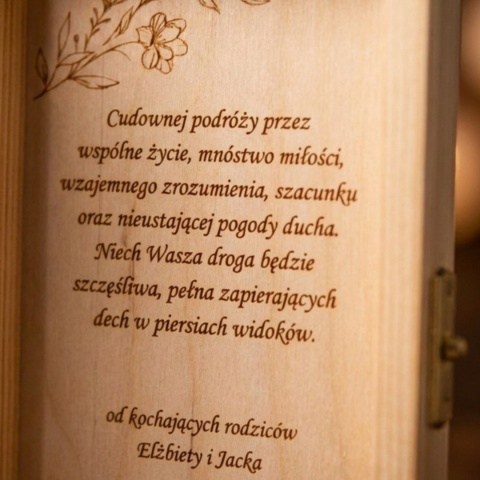 Cudownej podróży przez
wspólne życie, mnóstwo miłości,
wzajemnego zrozumienia, szacunku
oraz nieustającej pogody ducha.
Niech Wasza droga będzie
szczęśliwa, pełna zapierających
dech w piersiach widoków.
od kochających rodziców
Elżbiety i Jacka